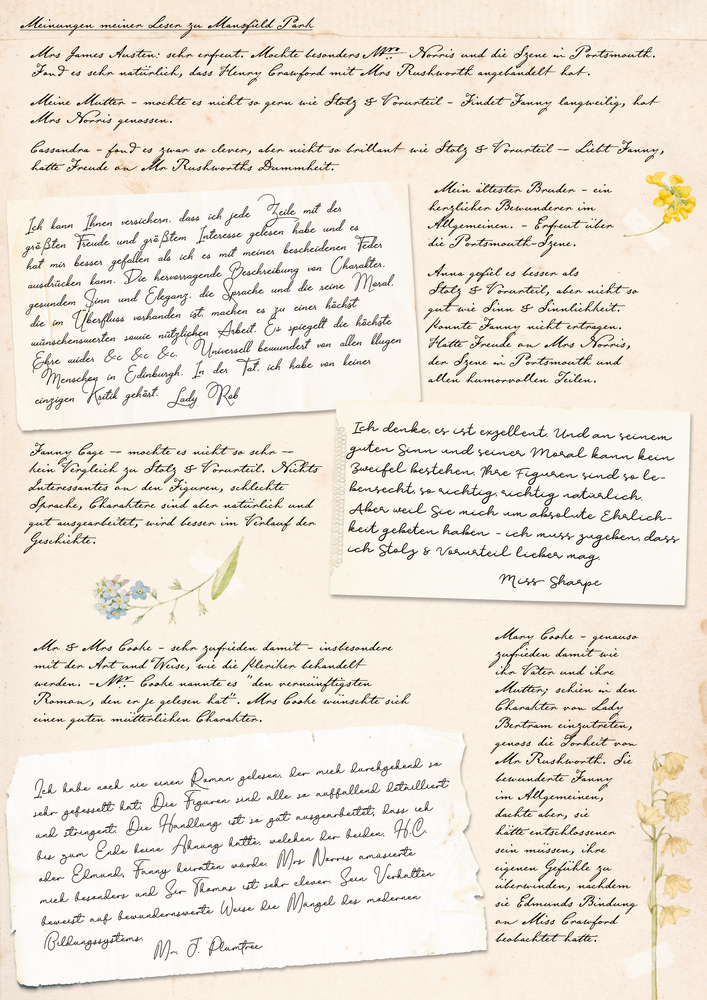 Meinungen meiner Leser zu Mansfield Park
Mrs James Austen: sehr erfreut. Mochte besonders Mrs. Norris und die Szene in Portsmouth.
Fand es sehr natürlich, dass Henry Crawford mit Mrs Rushworth angebandelt hat.
Meine Mutter – mochte es nicht so gern wie Stolz & Vorurteil – Findet Fanny langweilig, hat
Mrs Norris genossen.
Cassandra – fand es zwar so clever, aber nicht so brillant wie Stolz & Vorurteil – Liebt Fanny,
hatte Freude an Mr Rushworths Dummheit.
Ich kann Ihnen versichern, dass ich jede Zeile mit der
größten Freude und größtem Interesse gelesen habe und es
hat mir besser gefallen als ich es mit meiner bescheidenen Feder
ausdrücken kann. Die hervorragende Beschreibung von Charakter,
gesundem Sinn und Eleganz, die Sprache und die reine Moral,
die im Überfluss vorhanden ist, machen es zu einer höchst
wünschenswerten sowie nützlichen Arbeit. Es spiegelt die höchste
Ehre wider &c &c &c. Universell bewundert von allen klugen
Menschen in Edinburgh. In der Tat, ich habe von keiner
einzigen Kritik gehört. Lady Rob
Mein ältester Bruder – ein
herzlicher Bewunderer im
Allgemeinen. – Erfreut über
die Portsmouth-Szene.
Anna gefiel es besser als
Stolz & Vorurteil, aber nicht so
gut wie Sinn & Sinnlichkeit.
Konnte Fanny nicht ertragen.
Hatte Freude an Mrs Norris,
der Szene in Portsmouth und
allen humorvollen Teilen.
Ich denke, es ist exzellent. Und an seinem
guten Sinn und seiner Moral kann kein
Zweifel bestehen. Ihre Figuren sind so le-
bensecht, so richtig, richtig natürlich.
Aber weil Sie mich um absolute Ehrlich-
keit gebeten haben – ich muss zugeben, dass
ich Stolz & Vorurteil lieber mag.
Miss Sharpe
Fanny Cage – mochte es nicht so sehr –
kein Vergleich zu Stolz & Vorurteil. Nichts
Interessantes an den Figuren, schlechte
Sprache, Charaktere sind aber natürlich und
gut ausgearbeitet, wird besser im Verlauf der
Geschichte.
Mr & Mrs Cooke – sehr zufrieden damit – insbesondere
mit der Art und Weise, wie die Kleriker behandelt
werden. – Mr. Cooke nannte es "den vernünftigsten
Roman, den er je gelesen hat". Mrs Cooke wünschte sich
einen guten mütterlichen Charakter.
Mary Cooke – genauso
zufrieden damit wie
ihr Vater und ihre
Mutter; schien in den
Charakter von Lady
Bertram einzutreten,
genoss die Torheit von
Mr Rushworth. Sie
bewunderte Fanny
im Allgemeinen,
dachte aber, sie
hätte entschlossener
sein müssen, ihre
eigenen Gefühle zu
überwinden, nachdem
sie Edmunds Bindung
an Miss Crawford
beobachtet hatte.
Ich habe noch nie einen Roman gelesen, der mich durchgehend so
sehr gefesselt hat. Die Figuren sind alle so auffallend detailliert
und stringent. Die Handlung ist so gut ausgearbeitet, dass ich
bis zum Ende keine Ahnung hatte, welchen der beiden, H.C.
oder Edmund, Fanny heiraten würde. Mrs Norris amüsierte
mich besonders und Sir Thomas ist sehr clever. Sein Verhalten
beweist auf bewundernswerte Weise die Mängel des modernen
Bildungssystems.
Mr. J. Plumtree